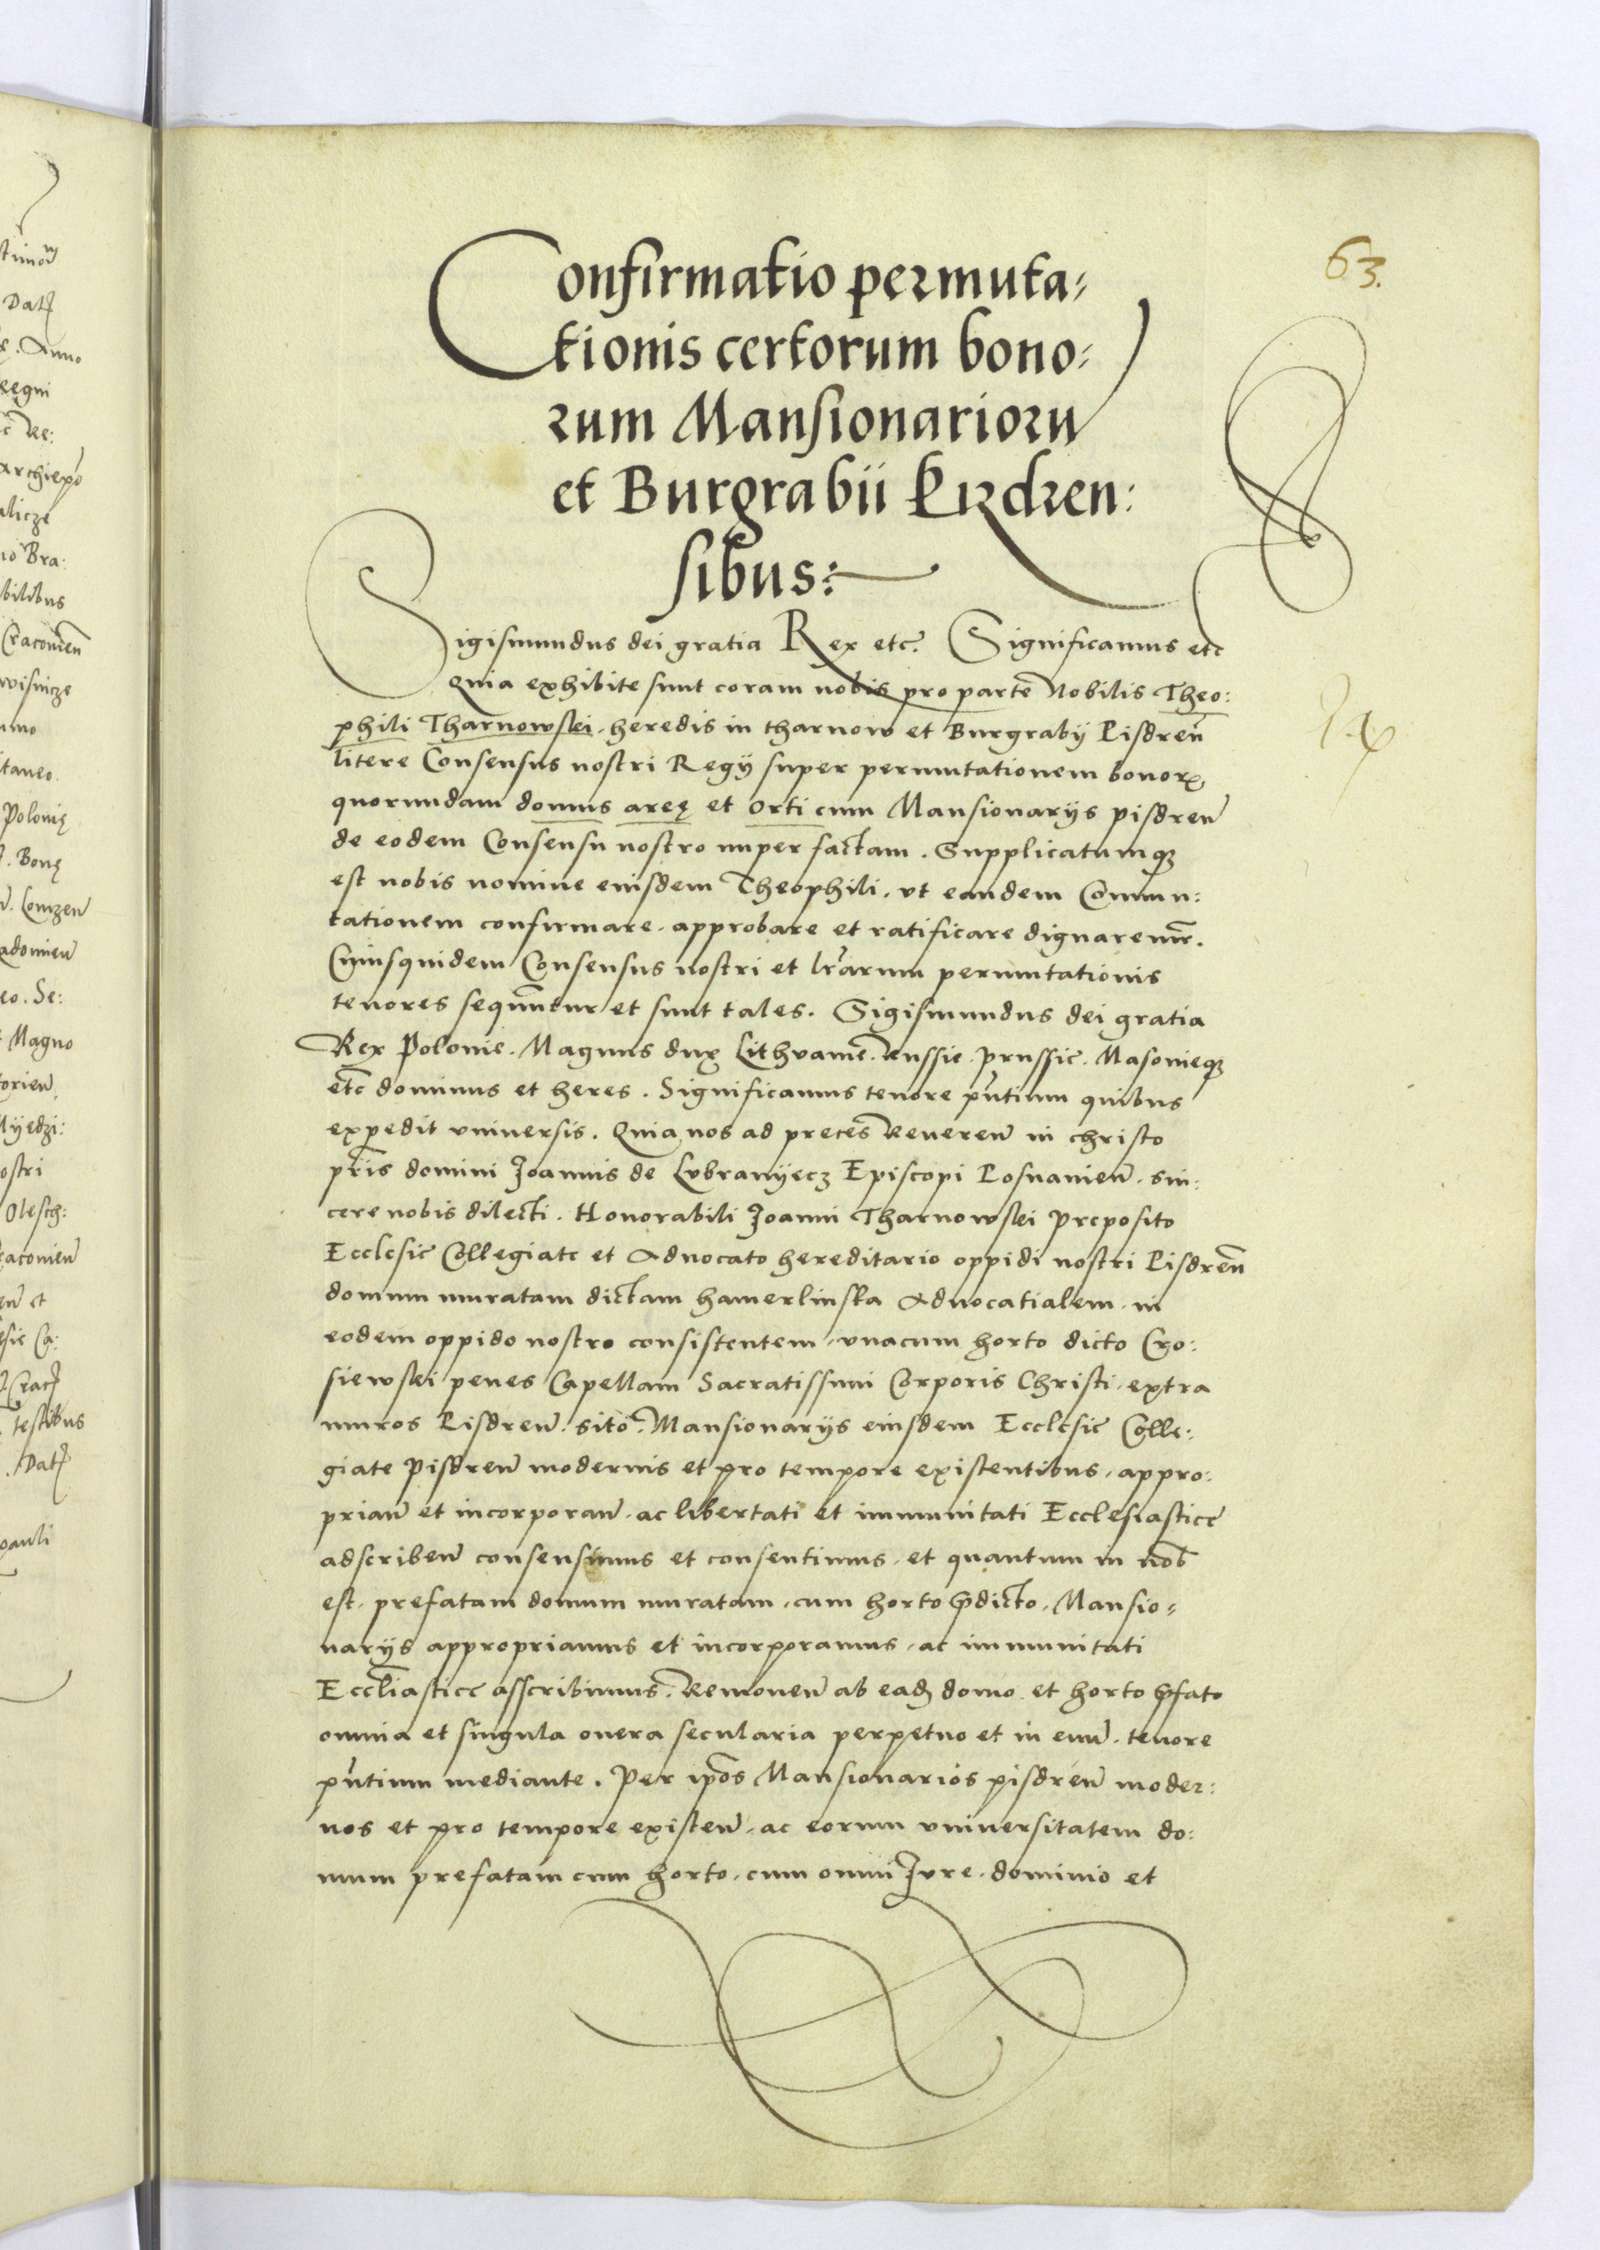 63.
Confirmatio permuta-
tionis certorum bono-
rum Mansionarioru
et Burgrabii Pizdren:
sibus:
Sigismundus dei gratia Rex etc. Significamus etc
Quia exhibite sunt coram nobis pro parte Nobilis Theo:
phili Tharnowskj. heredis in tharnow et Burgrabÿ Pisdren̄
litere Consensus nostri Regÿ super permutationem bonorꝝ
quorundam domus areę et orti cum Mansionarÿs pisdren̄
de eodem Consensu nostro nuper factam. Supplicatumqꝫ
est nobis nomine eiusdem Theophili. vt eandem Commu:
tationem confirmare. approbare et ratificare dignaremr̄.
Cuiusquidem Consensus nostri et lr̄arum permutationis
tenores sequūtur et sunt tales. Sigismundus dei gratia
Rex Polonie. Magnus dux Lithvanie. Russie. prussie. Masovieqꝫ
etc̄ dominus et heres. Significamus tenore pn̄tium quibus
expedit vniversis. Quia nos ad preces Reueren̄ in christo
pr̄is domini Joannis de Lvbranÿecz Episcopi Posnanien̄. sin:
cere nobis dilecti. Honorabili Joanni Tharnowskj Preposito
Ecclesie Collegiate et Advocato hereditario oppidi nostri Pisdren̄
domum muratam dictam hamerlinska Aduocatialem. in
eodem oppido nostro consistentem. vnacum horto dicto Cro:
siewskj penes Capellam Sacratissimi Corporis Christi. extra
muros Pisdren̄. sito. Mansionarÿs eiusdem Ecclesie Colle:
giate Pisdren̄ modernis et pro tempore existentibus. appro:
prian̄ et incorporan̄. ac libertati et immunitati Ecclesiastice
adscriben̄ consensimus et consentimus. et quantum in nob̄
est. prefatam domum muratam. cum horto p̄dicto. Mansio-
narÿs appropriamus et incorporamus. ac immunitati
Eccl̄iastice asscribimus. Remouen̄ ab eadꝫ domo et horto p̄fato
omnia et singula onera secularia perpetuo et in euū. tenore
pn̄tium mediante. Per ip̄os Mansionarios pisdren̄ moder:
nos et pro tempore existen̄. ac eorum vniuersitatem do:
mum prefatam cum horto. cum omni Jvre. dominio et